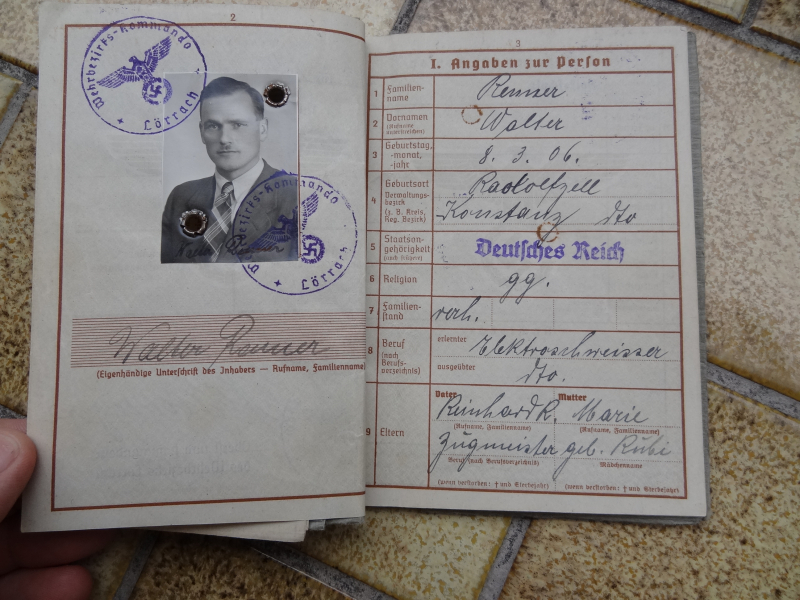 2
Wehrbezirks-Kommando
Lörrach
Wehrbezirks-Kommando
Lörrach
Walter Renner
Walter Renner
(Eigenhändige Unterschrift des Inhabers — Rufname, Familienname)
3
I. Angaben zur Person
1 Familien-
name
Renner
2 Vornamen
(Rufname
unterstreichen)
Walter
3 Geburtstag,
-monat,
-jahr
8. 3. 06.
4 Geburtsort
Verwaltungs-
bezirk
(z. B. Kreis,
Reg. Bezirk)
Radolfzell
Konstanz dto
5 Staatsan-
gehörigkeit
(auch frühere)
Deutsches Reich
6 Religion
gg.
7 Familien-
stand
verh.
8 Beruf
(nach
Berufs-
verzeichnis)
erlernter
Elektroschweisser
ausgeübter
dto.
9 Eltern
Vater
Mutter
Reinhard K. Marie
(Rufname, Familienname)
(Rufname, Familienname)
Zugmeister geb. Rübi
Beruf (nach Berufsverzeichnis)
Mädchenname
(wenn verstorben: † und Sterbejahr)
(wenn verstorben: † und Sterbejahr)